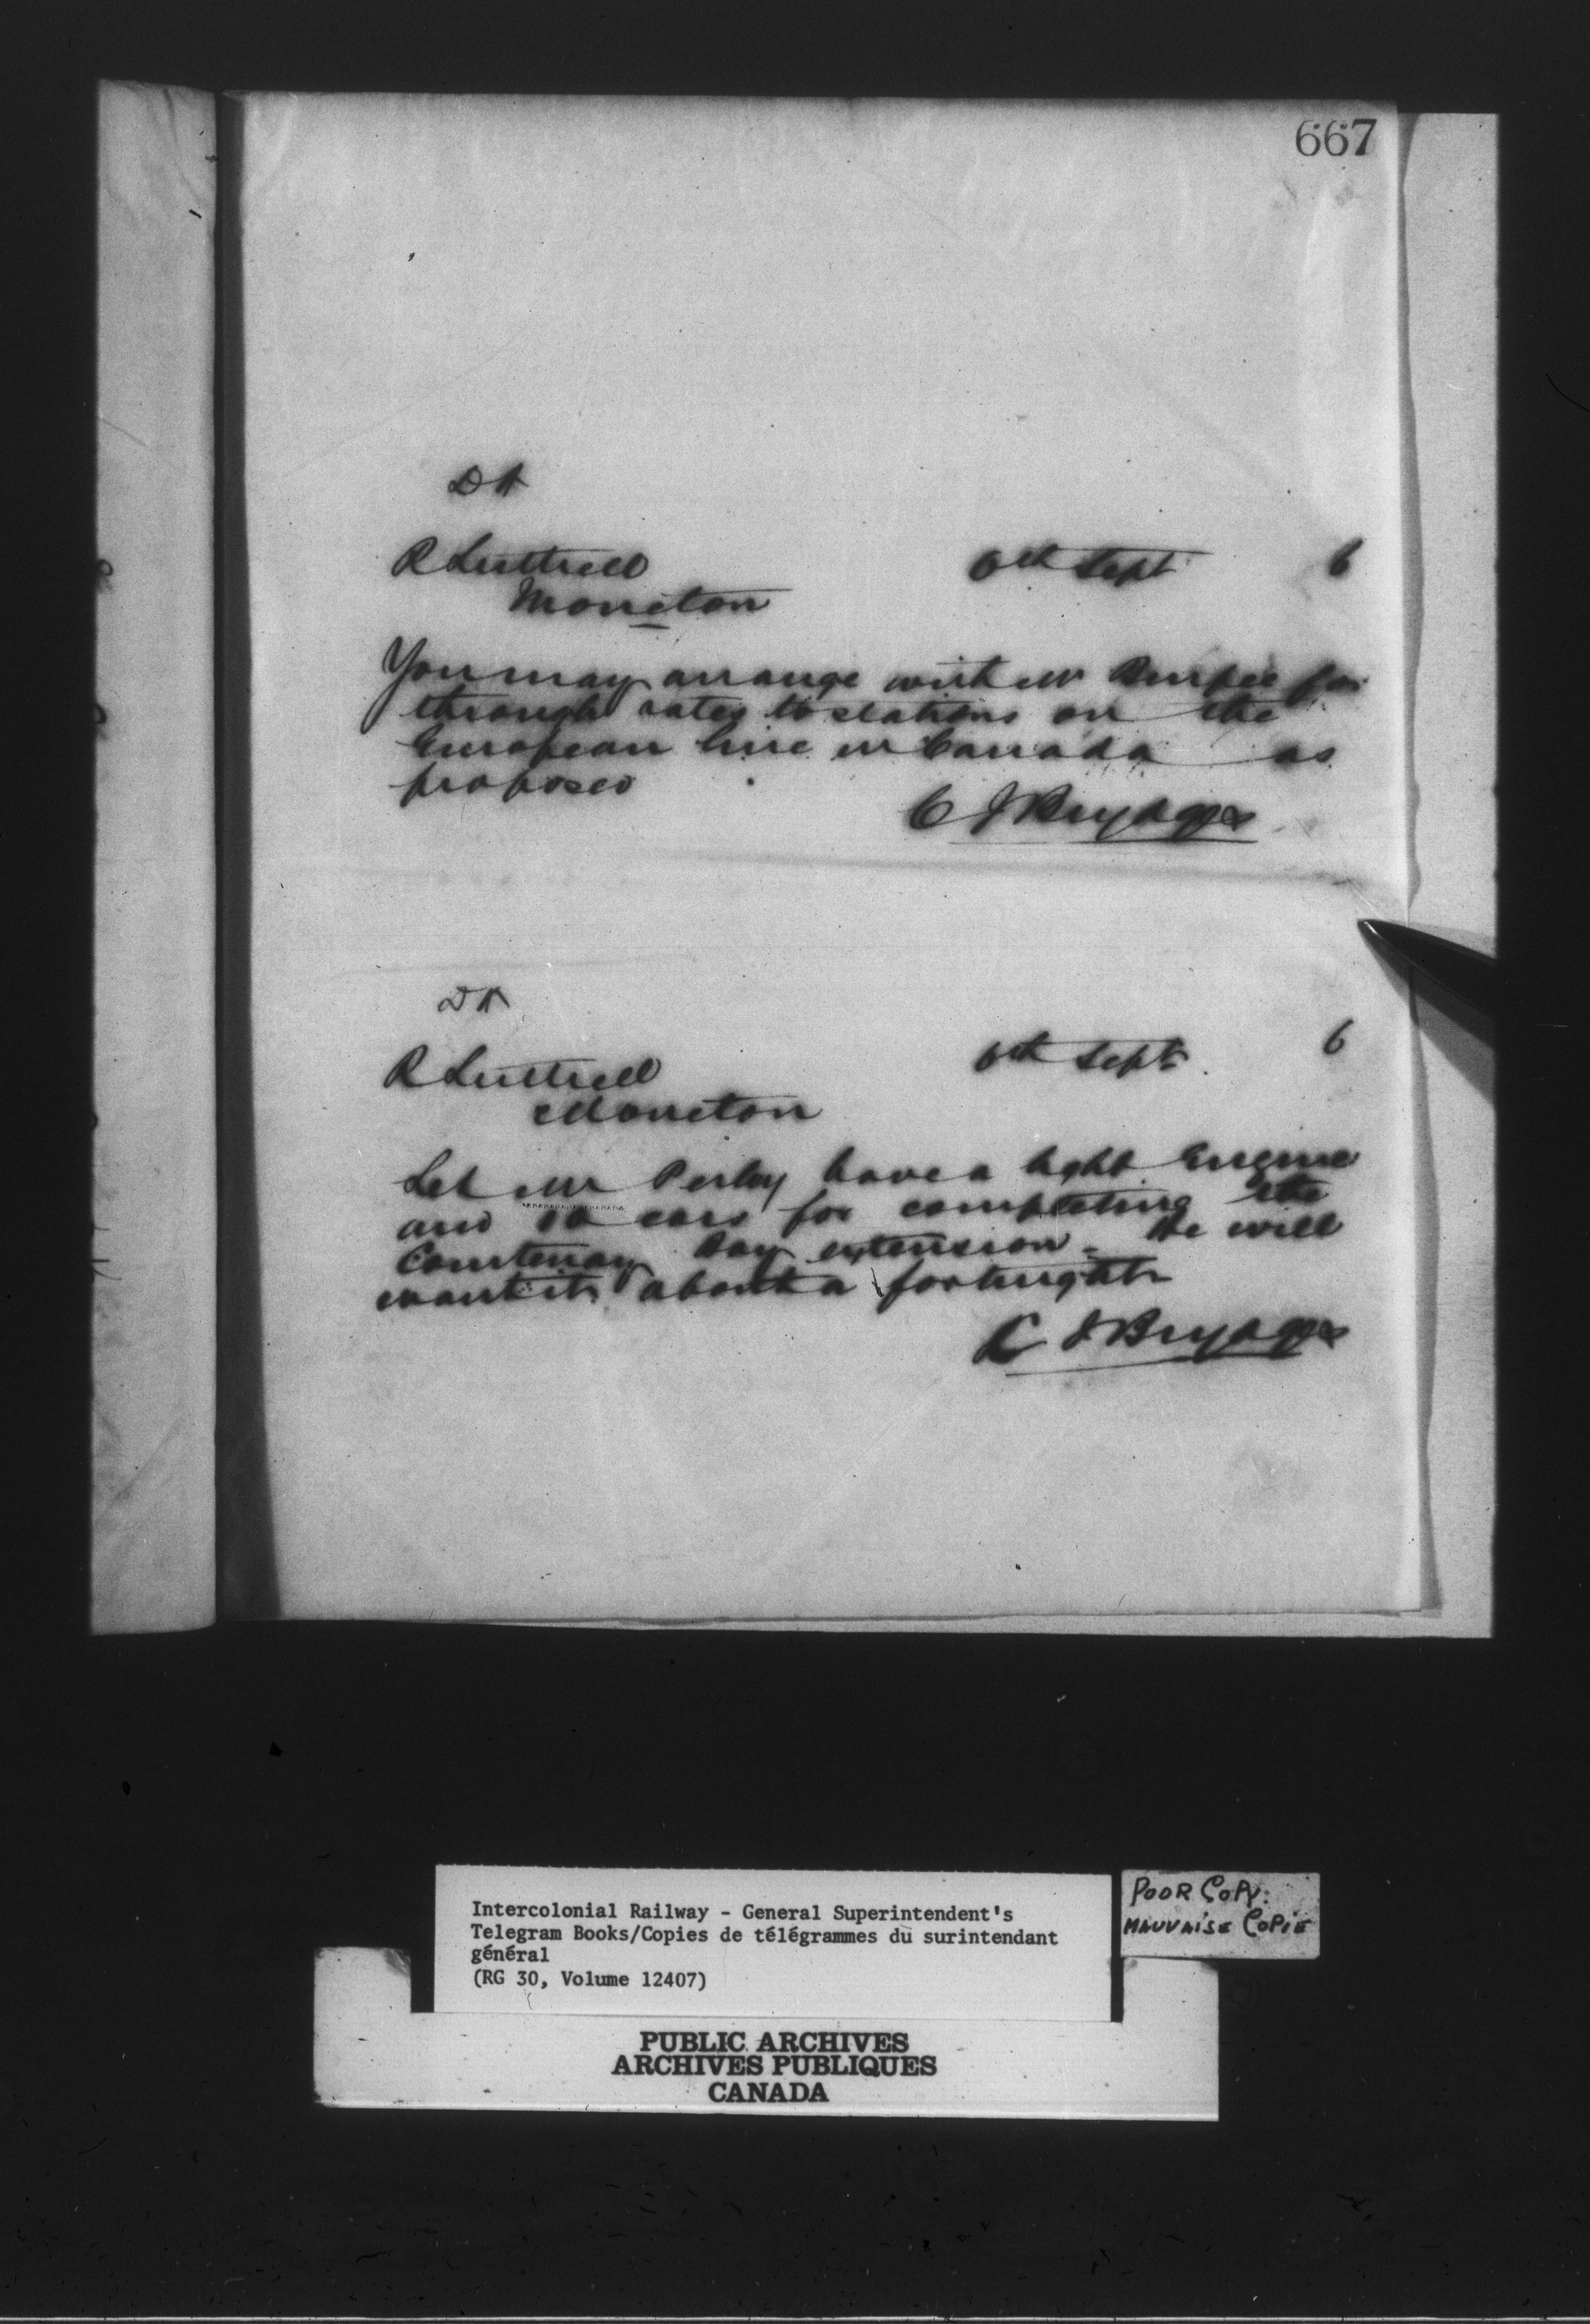 667
DH
R Luttrell 6th Sept 6
Moncton
You may arrange with Mr Burpee for
through rates to stations on the
European line in Canada as
proposed
C J Brydges
DH
R Luttrell 6th Sept. 6
Moncton
Let Mr Perley have a light Engine
and 10 cars for completing the
Courtenay Bay extension - He will
want it about a fortnight
C J Brydges
Intercolonial Railway - General Superintendent's
Telegram Books/Copies de télégrammes du surintendant
général
(RG 30, Volume 12407)
POOR COPY.
MAUVAISE COPIE
PUBLIC ARCHIVES
ARCHIVES PUBLIQUES
CANADA